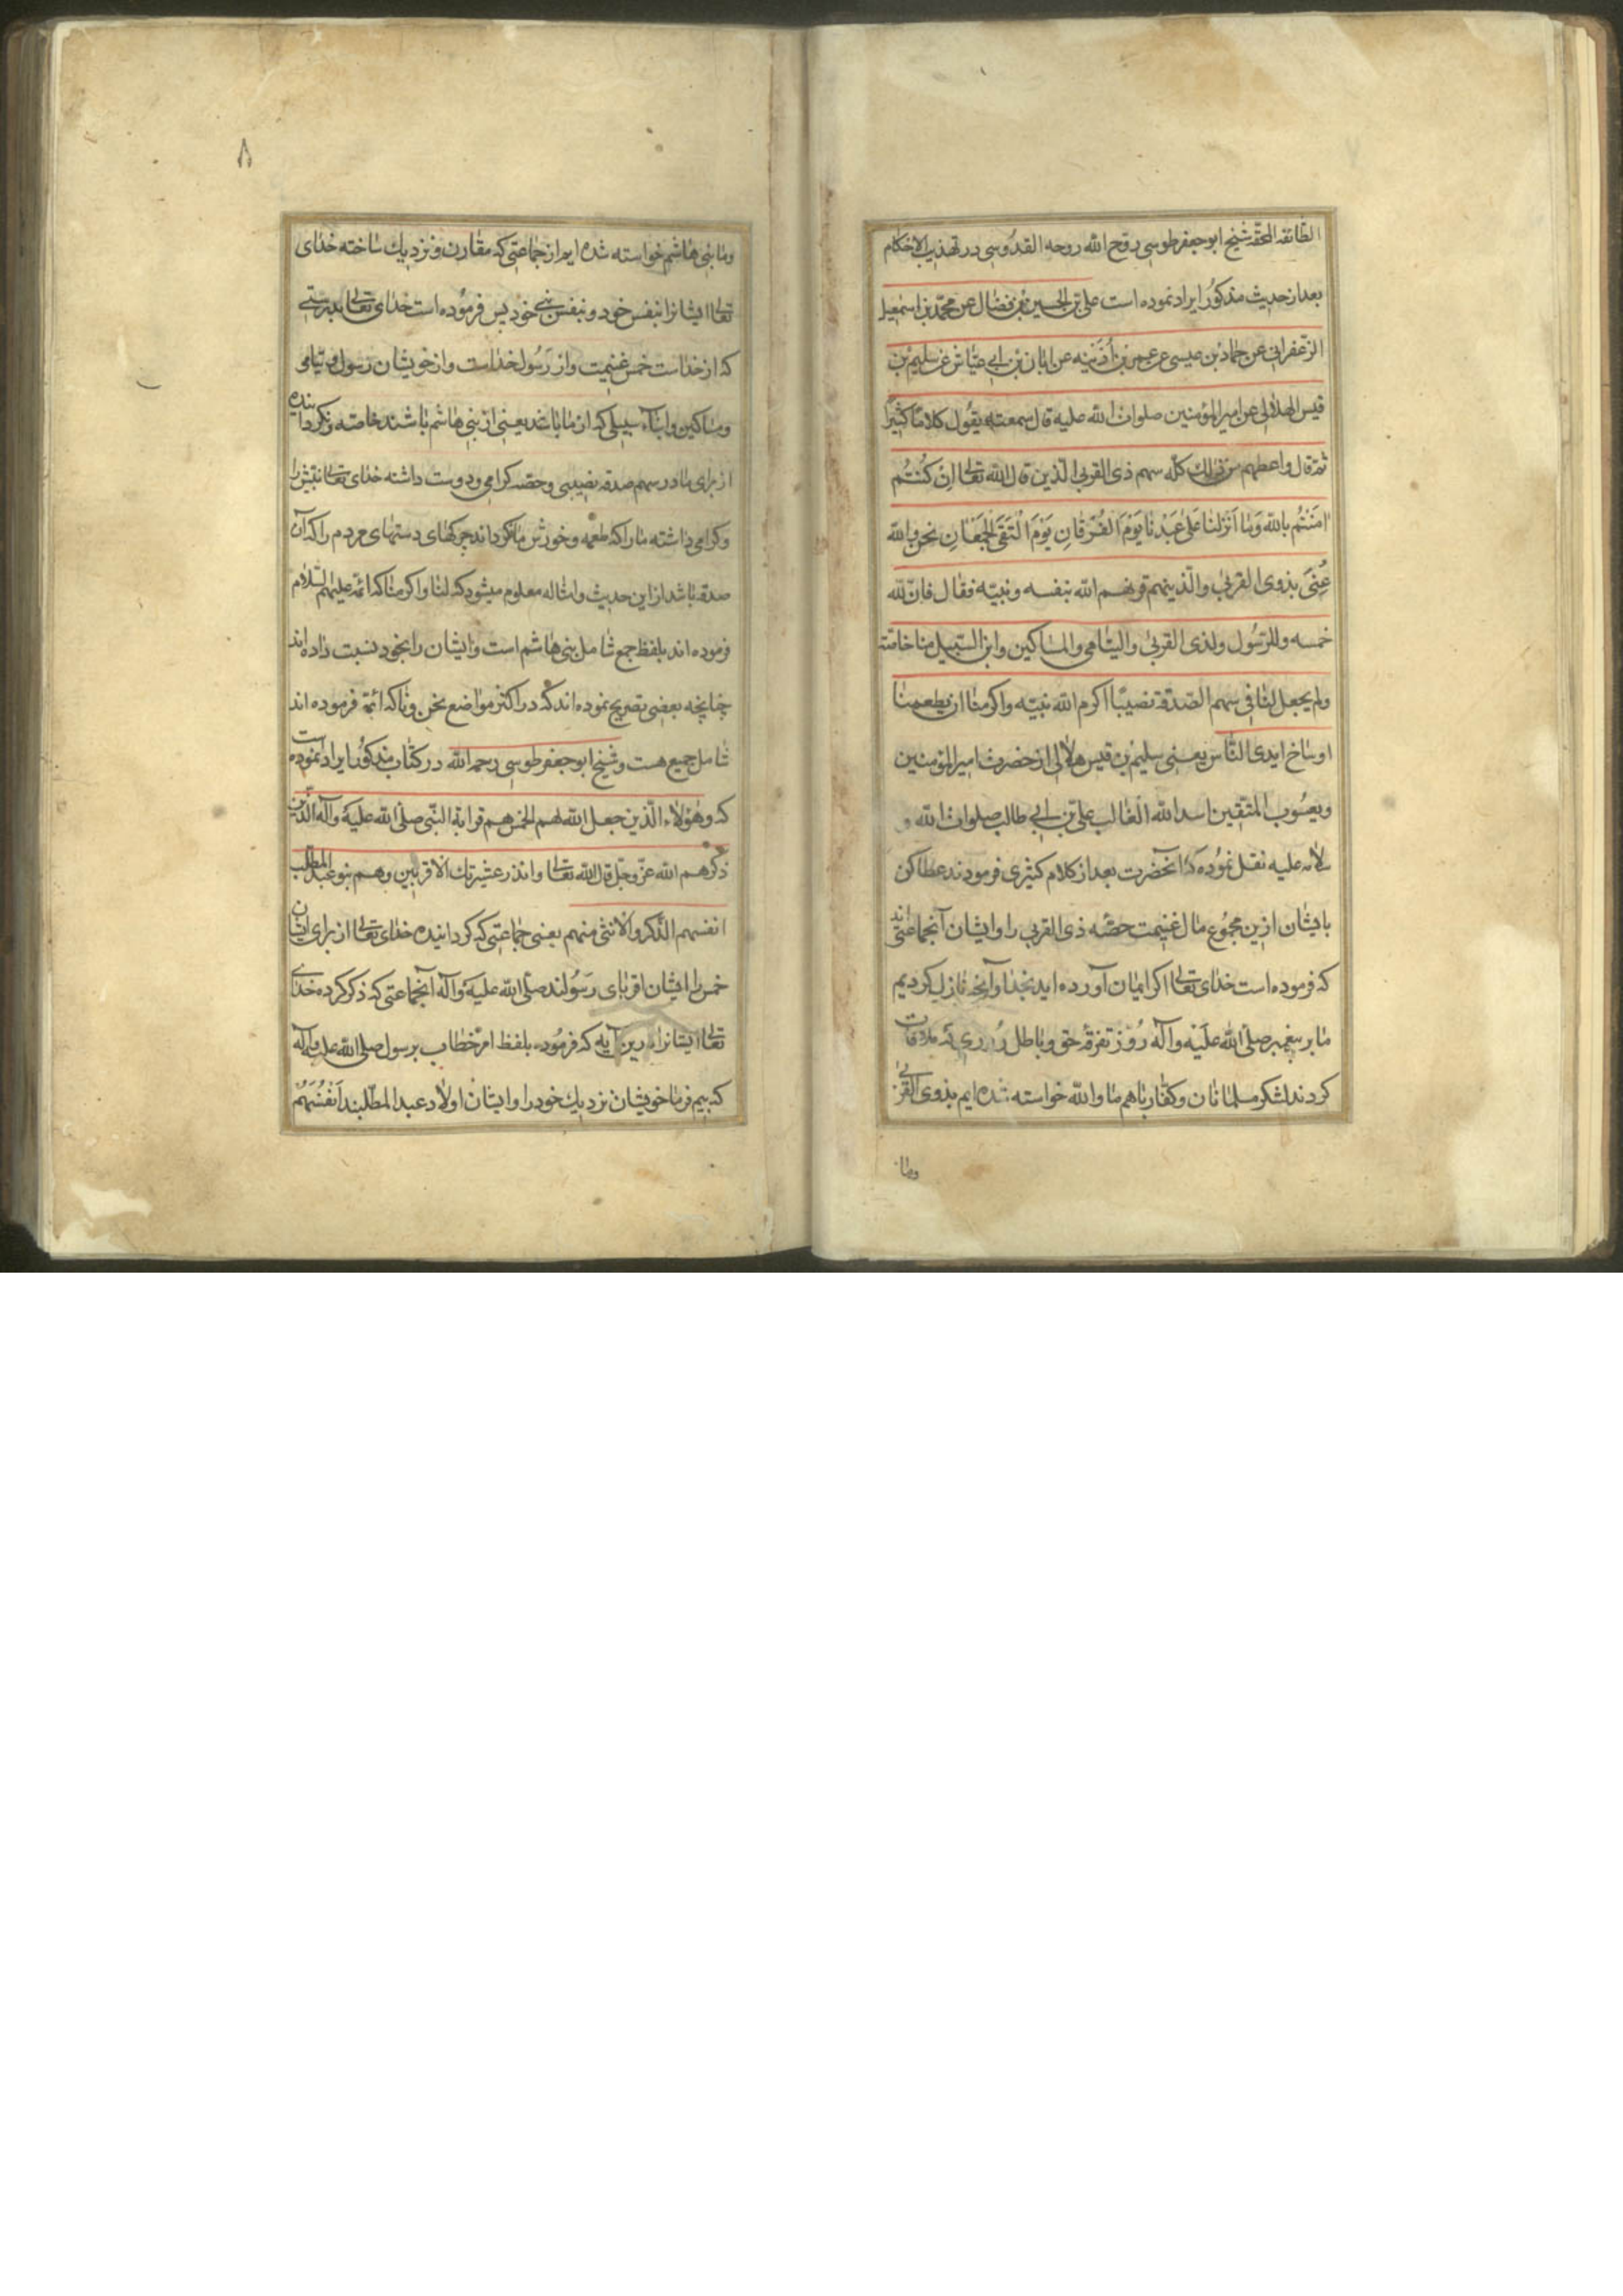 الطائفة المحقه شیخ ابو جعفر طوسی روح الله روحه القدوسی در تهذیب الاحکام
بعد از حدیث مذکور ایراد نموده است علی بن الحسین بن فضال عن محمد بن اسمعیل
الزعفرانی عن حماد بن عیسی عن عمر بن أذینه عن ابان بن ابی عیاش عن سلیم بن
قیس الهلالی عن امیر المؤمنین صلوات الله علیه قال سمعته یقول کلاما کثیرا
ثم قال واعطهم من ذلك کله سهم ذی القربی الذین قال الله تعالی ان کنتم
امنتم بالله وما انزلنا علی عبدنا یوم الفرقان یوم التقی الجمعان نحن والله
عنی بذوی القربی والذینهم قرنهم الله بنفسه ونبیه فقال فان لله
خمسه وللرسول ولذی القربی والیتامی والمساکین وابن السبیل منا خاصة
ولم یجعل لنا فی سهم الصدقة نصیبا اکرم الله نبیه واکرمنا ان یطعمنا
اوساخ ایدی الناس یعنی سلیم بن قیس هلالی از حضرت امیر المؤمنین
ویعسوب المتقین اسد الله الغالب علی بن ابی طالب صلوات الله و
سلامه علیه نقل نموده که آنحضرت بعد از کلام کثیری فرمودند عطا کن
بایشان ازین مجموع مال غنیمت حصه ذی القربی را وایشان آنجماعتی اند
که فرموده است خدای تعالی اکر ایمان آورده اید بخدا وآنچه نازل کردیم
ما بر پیغمبر صلی الله علیه وآله روز تفرقه حق وباطل روزی که ملاقات
کردند لشکر مسلمانان وکفار باهم ما والله خواسته شده ایم بذوی القربی
وما
۸
وما بنی هاشم خواسته شده ایم از جماعتی که مقارن ونزدیك ساخته خدای
تعالی ایشانرا بنفس خود وبنفس نبی خود پس فرموده است خدای تعالی بدرستی
که از خداست خمس غنیمت واز رسول خداست واز خویشان رسول ویتامی
ومساکین وابناء سبیلی که از ما باشد یعنی از بنی هاشم باشند خاصه ونکردانیده
از برای ما در سهم صدقه نصیبی وحصه کرامی ودوست داشته خدای تعالی نبیش را
وکرامی داشته ما را که طعمه وخورش ما نکرداند چرکهای دستهای مردم را که آن
صدقه باشد از این حدیث وامثاله معلوم میشود که لنا واکرمنا که ائمه علیهم السلام
فرموده اند بلفظ جمع شامل بنی هاشم است وایشان را بخود نسبت داده اند
چنانچه بعضی تصریح نموده اند که در اکثر مواضع نحن ونا که ائمه فرموده اند
شامل جمیع هست وشیخ ابو جعفر طوسی رحمه الله در کتاب مذکور ایراد نموده است
که وهؤلاء الذین جعل الله لهم الخمس هم قرابة النبی صلی الله علیه وآله الذین
ذکرهم الله عز وجل قال الله تعالی وانذر عشیرتك الاقربین وهم بنو عبد المطلب
انفسهم الذکر والانثی منهم یعنی جماعتی که کردانیده خدای تعالی از برای ایشان
خمس را ایشان اقربای رسولند صلی الله علیه وآله آنجماعتی که ذکر کرده خدای
تعالی ایشانرا درین آیه که فرموده بلفظ امر خطاب برسول صلی الله علیه وآله
که بیم فرما خویشان نزدیك خود را وایشان اولاد عبد المطلبند انفسهم